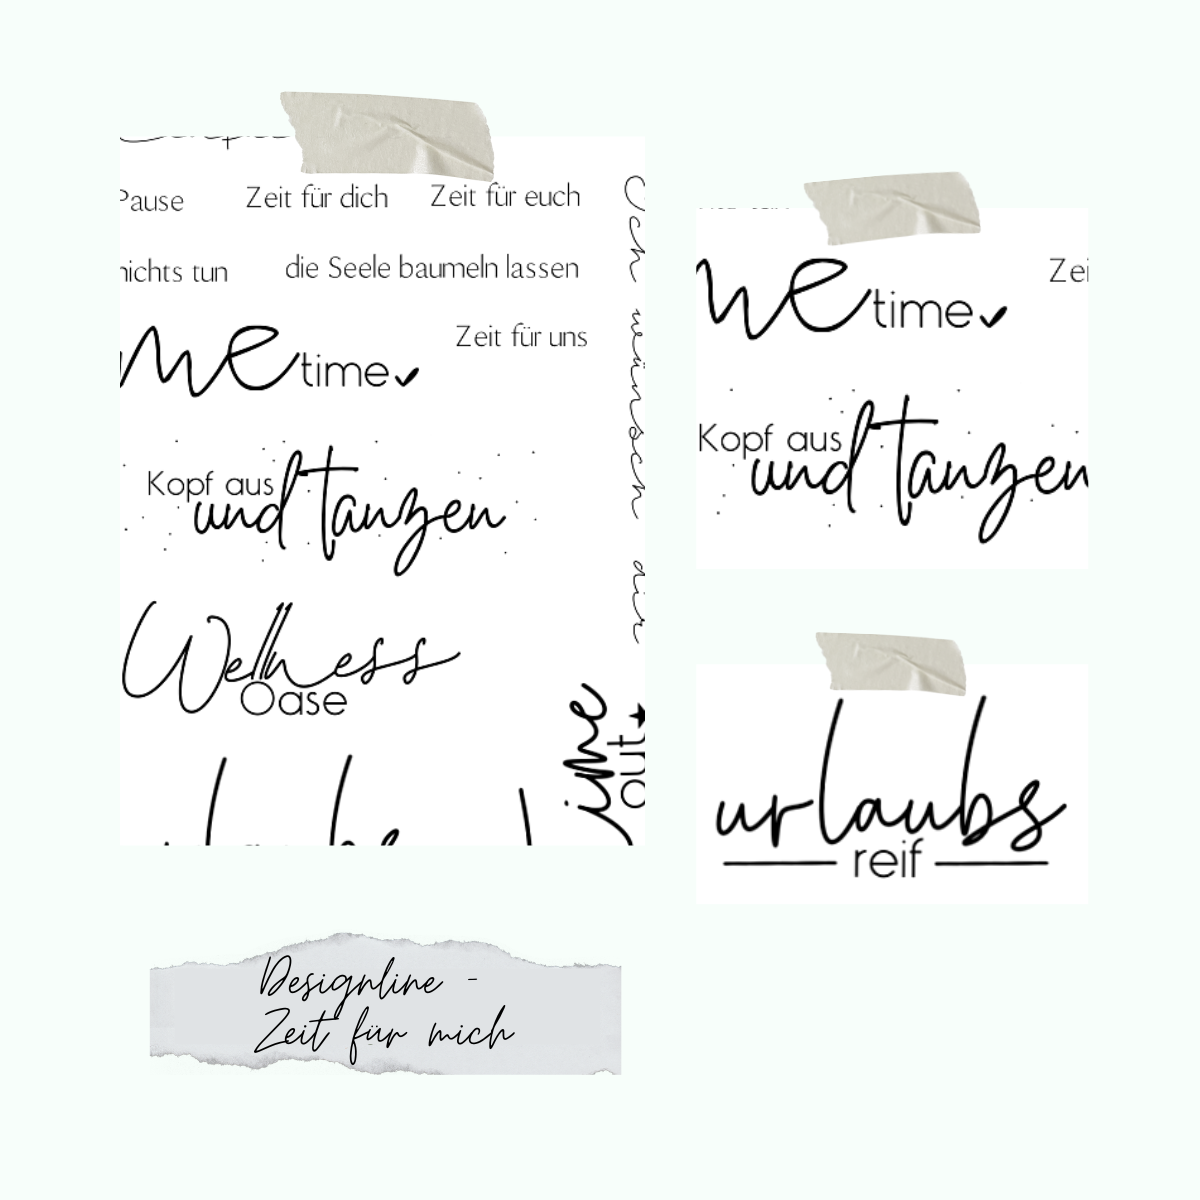 Pause
Zeit für dich
Zeit für euch
nichts tun
die Seele baumeln lassen
me time
Zeit für uns
Kopf aus
und tanzen
Wellness
Oase
Ich wünsch dir
time
out
me time
Kopf aus
und tanzen
urlaubs
reif
Designline -
Zeit für mich